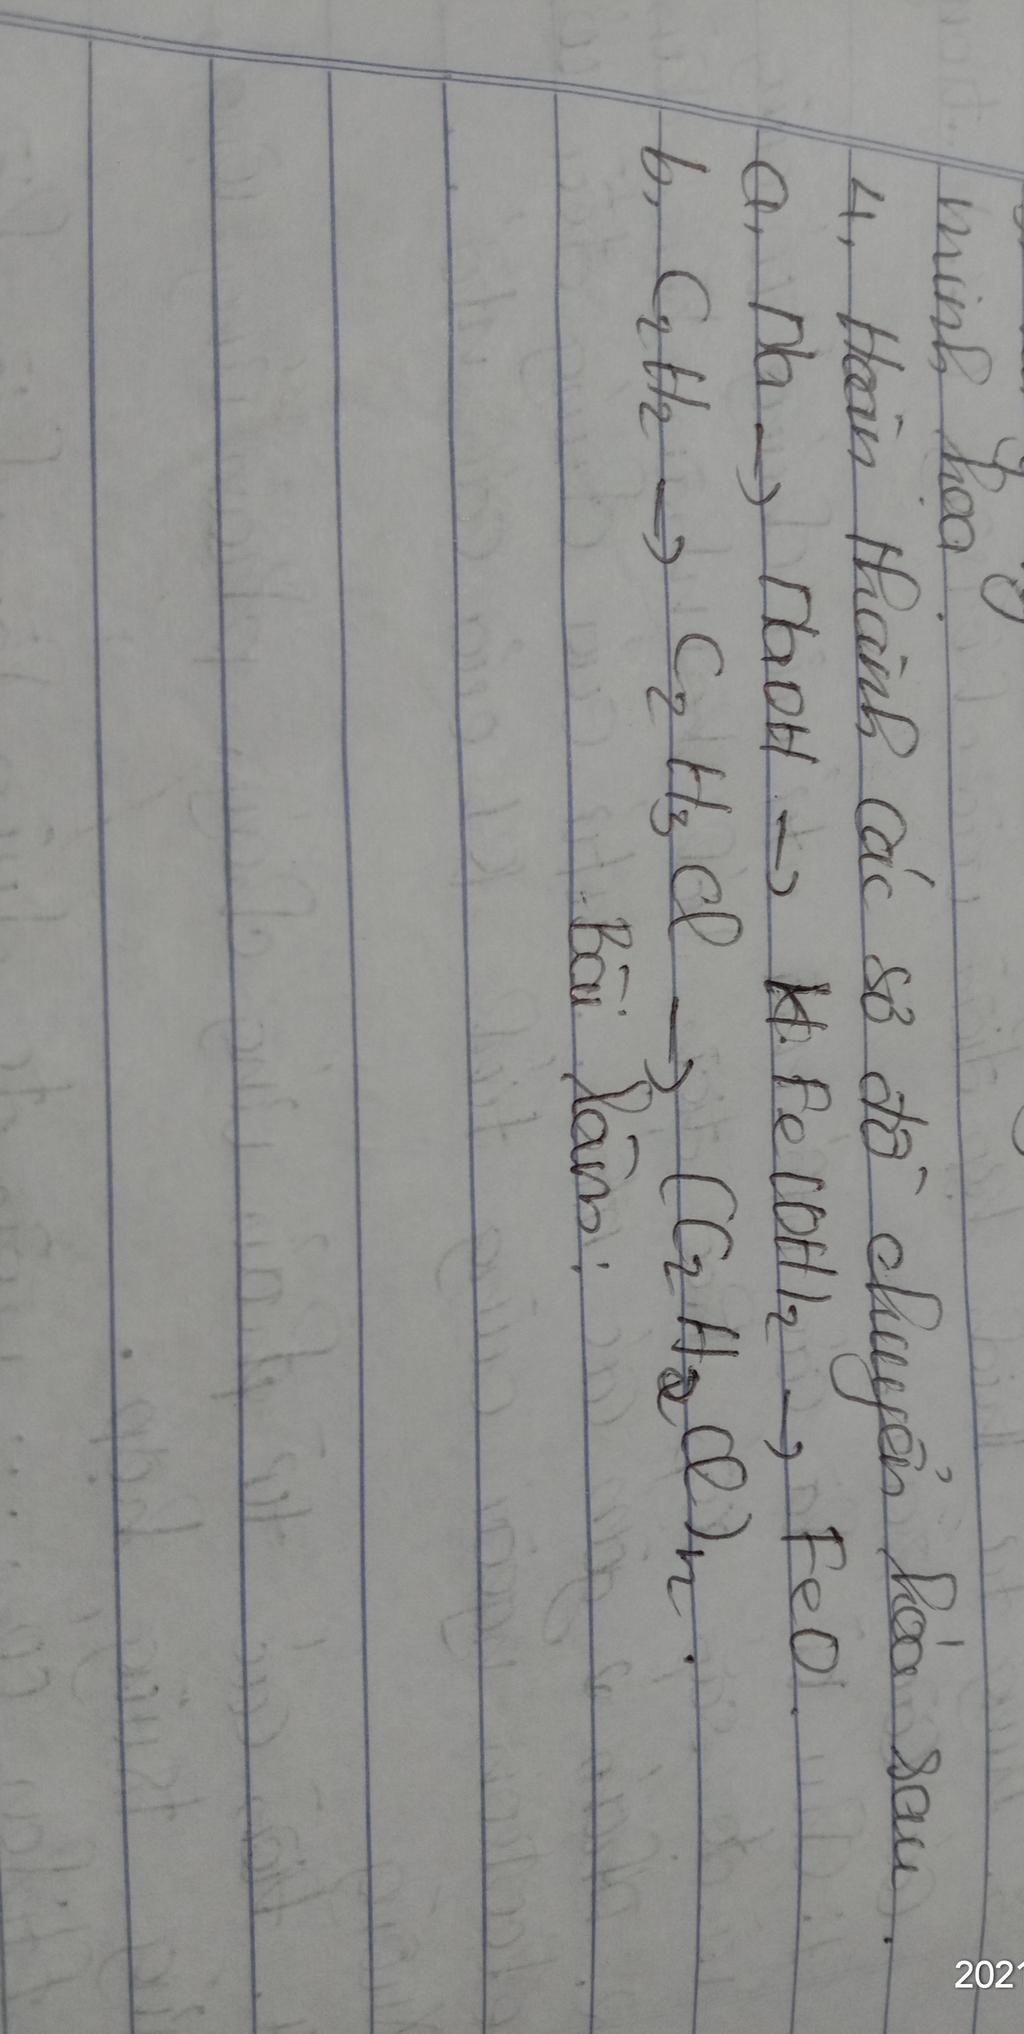 minh họa.
4, Hoàn thành các sơ đồ chuyển hóa sau.
a, Na → NaOH → Fe(OH)2 → FeO.
b, C2H2 → C2H3Cl → (C2H3Cl)n.
Bài làm:
2021